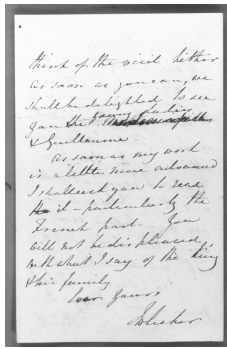 think of the visit hither
as soon as you can, we
shall be delighted to see
you the young ladies
& Guillaume
as soon as my work
is a little more advanced
I shall send you to read
it – particularly the
French part. You
will not be displeased
with what I say of the King
& his family
Ever Yours